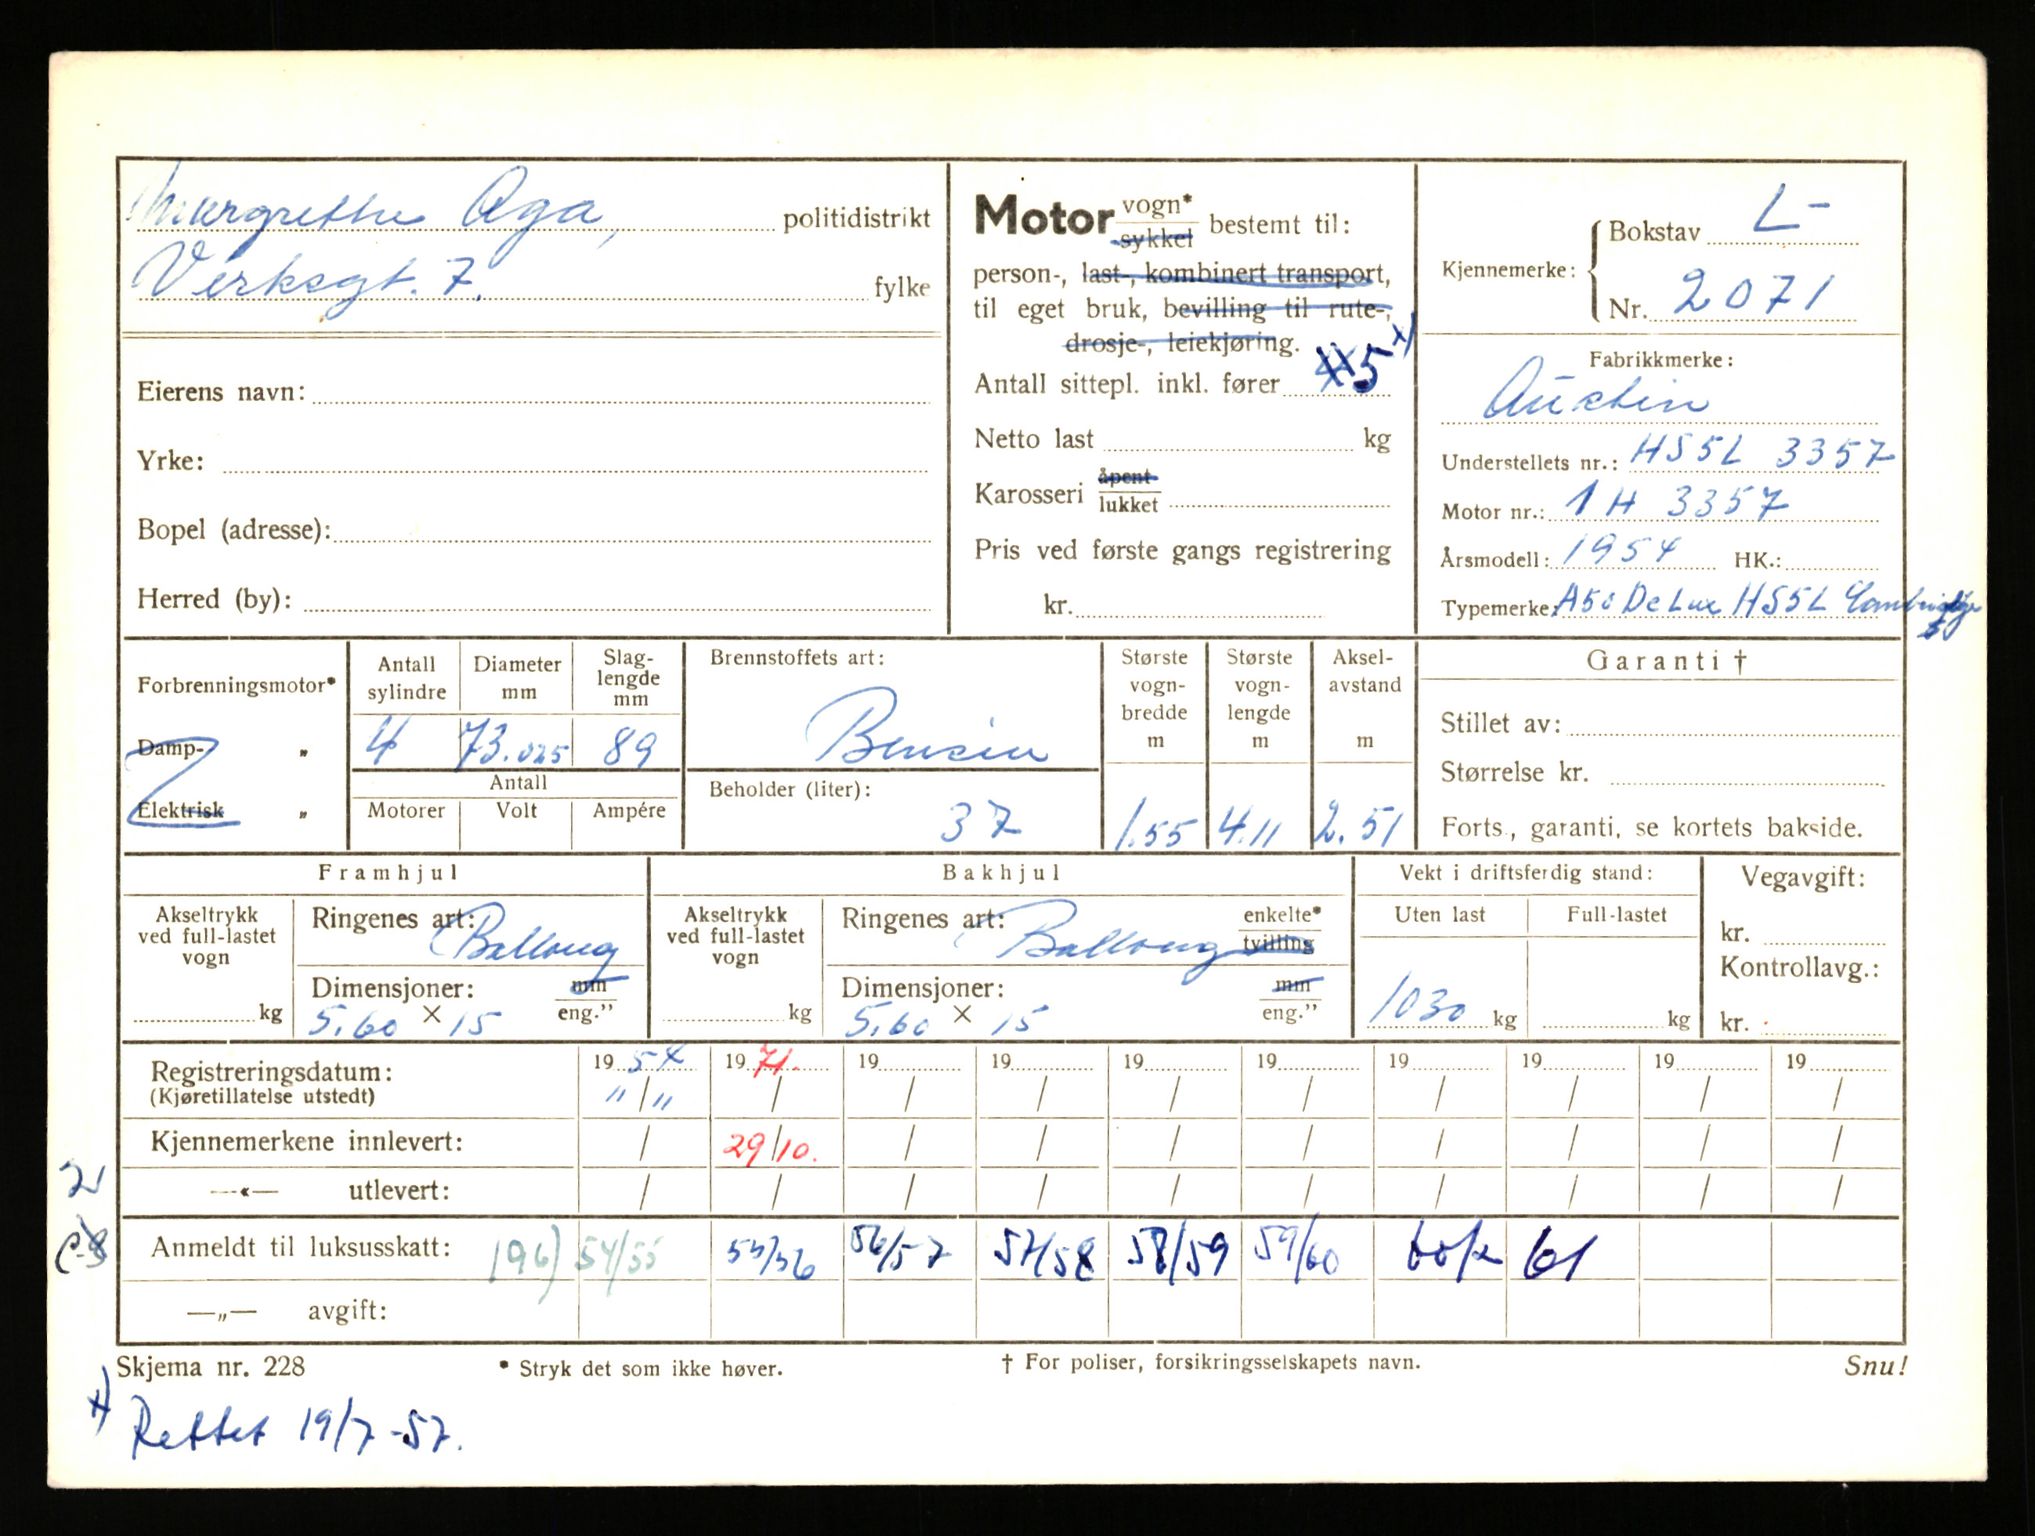 Margrethe Aga, politidistrikt
Verksgt. 7. fylke
Eierens navn:
Yrke:
Bopel (adresse):
Herred (by):
Motor vogn* sykkel bestemt til:
person-, last-, kombinert transport,
til eget bruk, bevilling til rute-,
drosje-, leiekjøring.
Antall sittepl. inkl. fører 5 x)
Netto last kg
Karosseri åpent lukket
Pris ved første gangs registrering
kr.
Kjennemerke: Bokstav L-
Nr. 2071
Fabrikkmerke:
Austin
Understellets nr.: HS5L 3357
Motor nr.: 1H 3357
Årsmodell: 1954 HK.:
Typemerke: A50 De Lux HS5L Cambridge
Forbrenningsmotor*
Damp- „
Elektrisk „
Antall sylindre Diameter mm Slag-lengde mm
4 73.025 89
Antall
Motorer Volt Ampére
Brennstoffets art:
Bensin
Beholder (liter):
37
Største vogn-bredde m
1.55
Største vogn-lengde m
4.11
Aksel-avstand m
2.51
Garanti †
Stillet av:
Størrelse kr.
Forts., garanti, se kortets bakside.
Framhjul
Akseltrykk ved full-lastet vogn
kg
Ringenes art: Ballong
Dimensjoner: mm eng.”
5.60 × 15
Bakhjul
Akseltrykk ved full-lastet vogn
kg
Ringenes art: Ballong enkelte* tvilling
Dimensjoner: mm eng.”
5.60 × 15
Vekt i driftsferdig stand:
Uten last Full-lastet
1030 kg kg
Vegavgift:
kr.
Kontrollavg.:
kr.
Registreringsdatum: 19 54 19 71. 19 19 19 19 19 19 19 19
(Kjøretillatelse utstedt) " / " / / / / / / / / /
Kjennemerkene innlevert: / 29/10. / / / / / / / /
—«— utlevert: / / / / / / / / / /
Anmeldt til luksusskatt: 196) 54/55 55/56 56/57 57/58 58/59 59/60 61
—„— avgift:
Skjema nr. 228 * Stryk det som ikke høver. † For poliser, forsikringsselskapets navn. Snu!
x) Rettet 19/7-57.